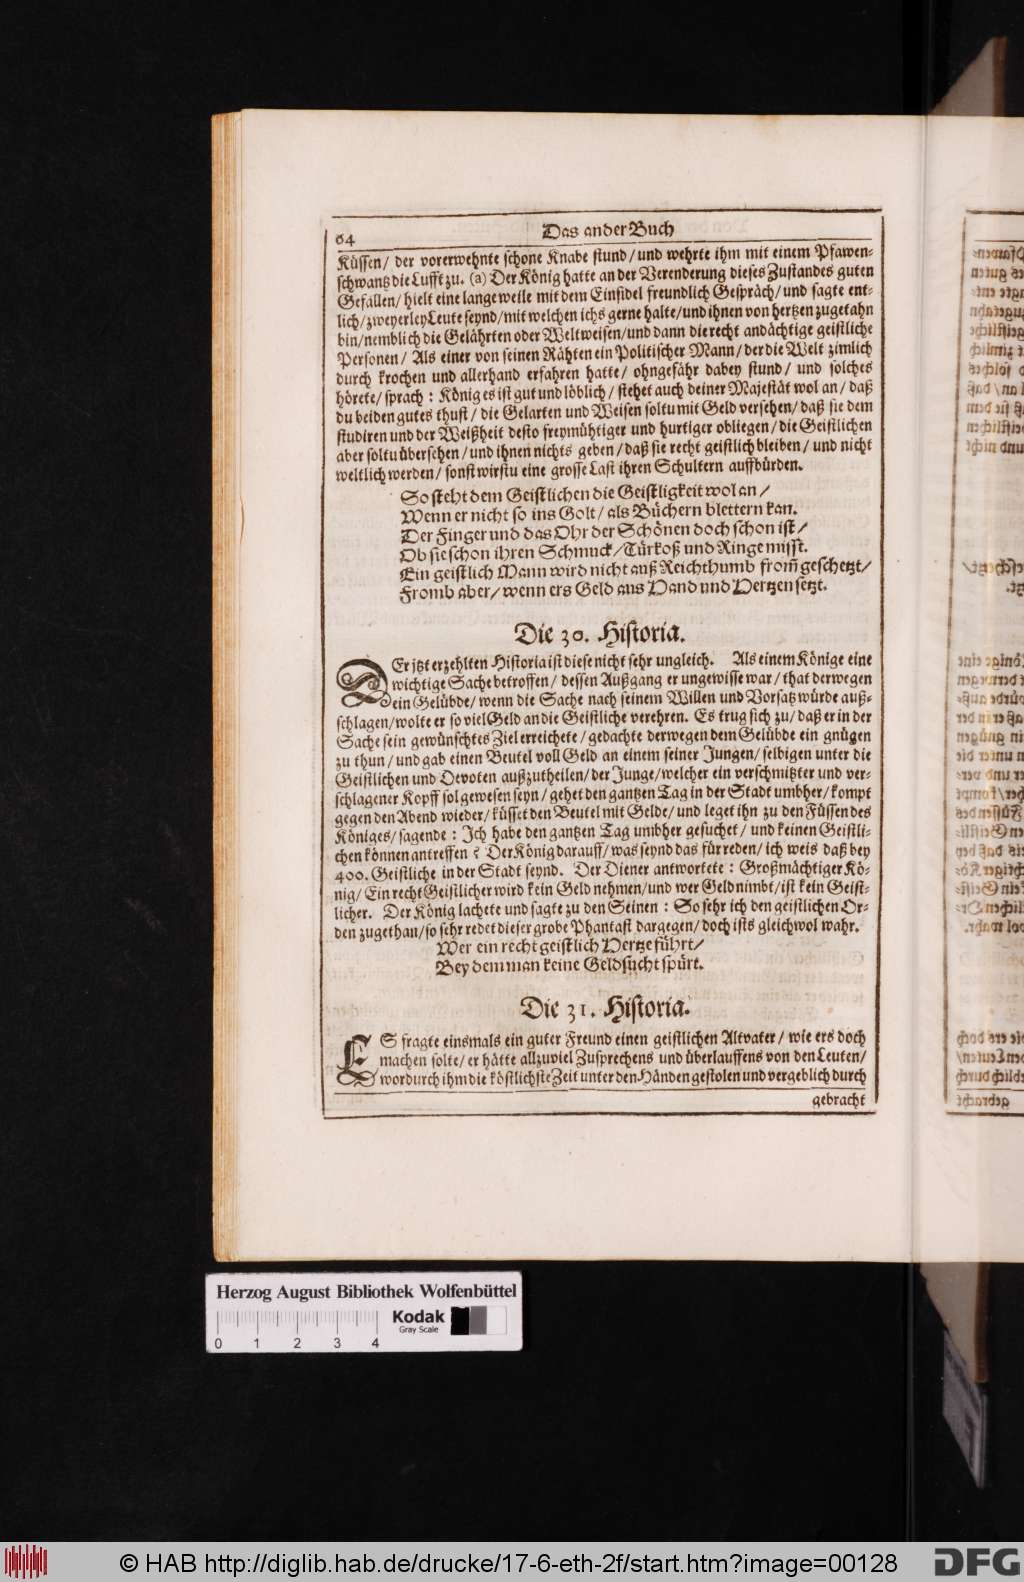 64
Das ander Buch
Küssen / der vorerwehnte schöne Knabe stund / und wehrte ihm mit einem Pfawen-
schwantz die Lufft zu. (a) Der König hatte an der Verenderung dieses Zustandes guten
Gefallen / hielt eine lange weile mit dem Einsidel freundlich Gespräch / und sagte ent-
lich / zweyerley Leute seynd / mit welchen ichs gerne halte / und ihnen von hertzen zugetahn
bin / nemblich die Gelährten oder Weltweisen / und dann die recht andächtige geistliche
Personen / Als einer von seinen Rähten ein Politischer Mann / der die Welt zimlich
durch krochen und allerhand erfahren hatte / ohngefähr dabey stund / und solches
hörete / sprach : König es ist gut und löblich / stehet auch deiner Majestät wol an / daß
du beiden gutes thust / die Gelarten und Weisen soltu mit Geld versehen / daß sie dem
studiren und der Weißheit desto freymühtiger und hurtiger obliegen / die Geistlichen
aber soltu übersehen / und ihnen nichts geben / daß sie recht geistlich bleiben / und nicht
weltlich werden / sonst wirstu eine grosse Last ihren Schultern auffbürden.
So steht dem Geistlichen die Geistligkeit wol an /
Wenn er nicht so ins Golt / als Büchern blettern kan.
Der Finger und das Ohr der Schönen doch schon ist /
Ob sie schon ihren Schmuck / Türkoß und Ringe misst.
Ein geistlich Mann wird nicht auß Reichthumb from̃ geschetzt /
Fromb aber / wenn ers Geld aus Hand und Hertzen setzt.
Die 30. Historia.
DEr jtzt erzehlten Historia ist diese nicht sehr ungleich. Als einem Könige eine
wichtige Sache betroffen / dessen Außgang er ungewisse war / that derwegen
ein Gelübde / wenn die Sache nach seinem Willen und Vorsatz würde auß-
schlagen / wolte er so viel Geld an die Geistliche verehren. Es trug sich zu / daß er in der
Sache sein gewünschtes Ziel erreichete / gedachte derwegen dem Gelübde ein gnügen
zu thun / und gab einen Beutel voll Geld an einem seiner Jungen / selbigen unter die
Geistlichen und Devoten außzutheilen / der Junge / welcher ein verschmitzter und ver-
schlagener Kopff sol gewesen seyn / gehet den gantzen Tag in der Stadt umbher / kompt
gegen den Abend wieder / küsset den Beutel mit Gelde / und leget ihn zu den Füssen des
Königes / sagende : Ich habe den gantzen Tag umbher gesuchet / und keinen Geistli-
chen können antreffen ? Der König darauff / was seynd das für reden / ich weis daß bey
400. Geistliche in der Stadt seynd. Der Diener antwortete : Großmächtiger Kö-
nig / Ein recht Geistlicher wird kein Geld nehmen / und wer Geld nimbt / ist kein Geist-
licher. Der König lachete und sagte zu den Seinen : So sehr ich den geistlichen Or-
den zugethan / so sehr redet dieser grobe Phantast dargegen / doch ists gleichwol wahr.
Wer ein recht geistlich Hertze führt /
Bey dem man keine Geldsucht spürt.
Die 31. Historia.
ES fragte einsmals ein guter Freund einen geistlichen Altvater / wie ers doch
machen solte / er hätte allzuviel Zusprechens und überlauffens von den Leuten /
wordurch ihm die köstlichste Zeit unter den Händen gestolen und vergeblich durch
gebracht
Herzog August Bibliothek Wolfenbüttel
Kodak
Gray Scale
0 1 2 3 4
© HAB http://diglib.hab.de/drucke/17-6-eth-2f/start.htm?image=00128
DFG